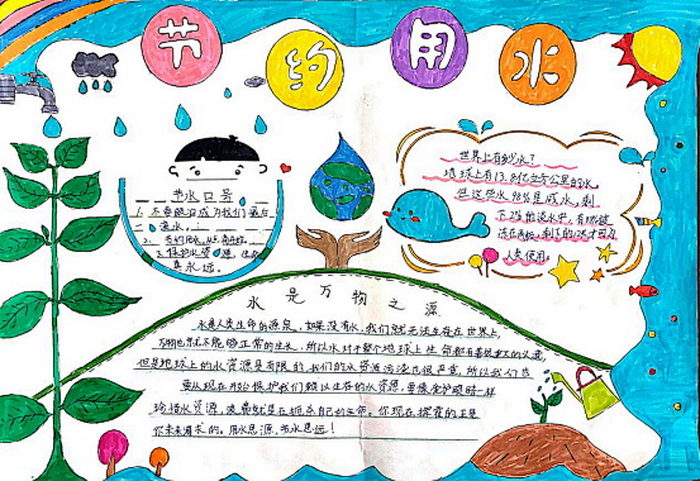 节约用水
节水口号
1. 不要眼泪成为我们最后
一滴水。
2. 节约用水，从
3. 保护水资源，生命
真永远。
世界上有多少水？
地球上有13.8亿立方公里的水，
但这些水98%是咸水，剩
下2%的淡水中，有
人类使用。
水是万物之源
水是人类生命的源泉，如果没有水，我们就无法生存在世界上，
万物也不能够正常的生长，所以水对于整个地球上生命都有着很大的
但是地球上的水资源是有限的，我们的水资源污染也很严重，所以我们
要从现在开始保护我们赖以生存的水资源，要像爱护眼睛一样
珍惜水资源，浪费就是在扼杀自己的生命。你现在挥霍的正是
你未来渴求的。用水思源，节水思远！